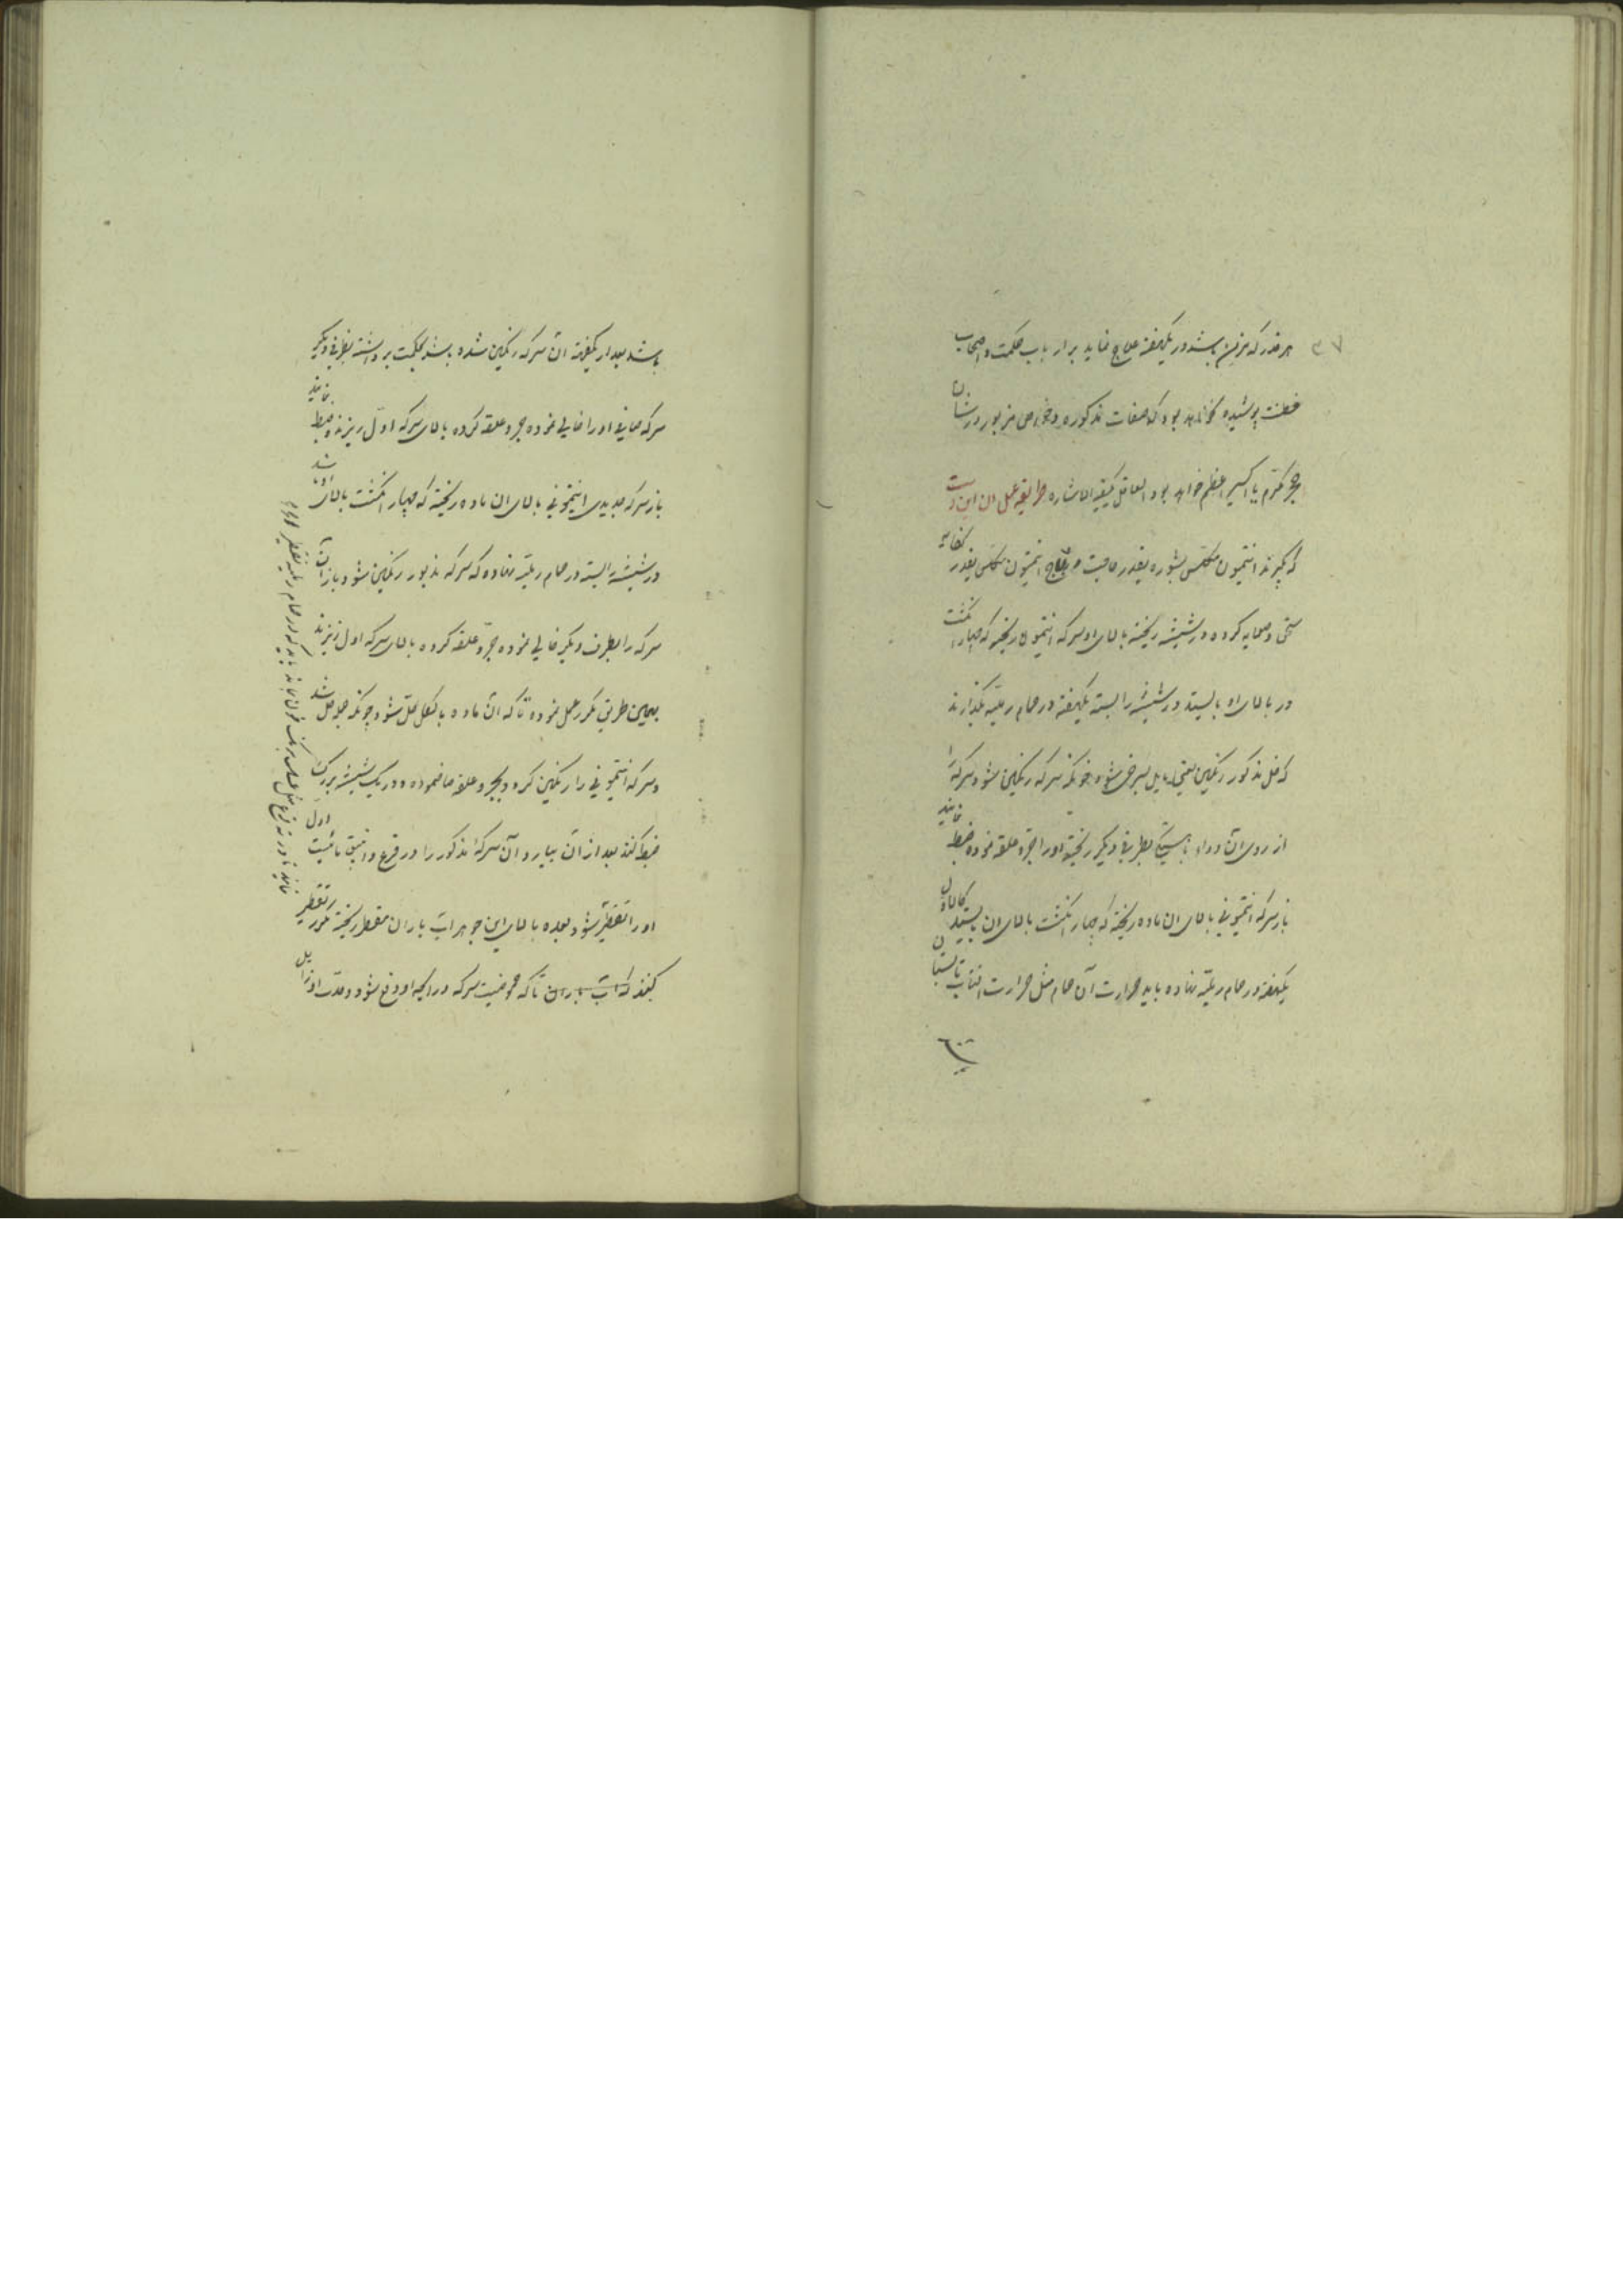 ۳۷
هر قدر که مزمن باشد در یکهفته علاج نماید بر ارباب حکمت و اصحاب
فطنت پوشیده نخواهد بود که صفات مذکوره و خواص مزبور در شان
حجر مکرم یا اکسیر اعظم خواهد بود العاقل یکفیه الاشاره طریقه عمل ان این است
که بگیرند انتیمون مکلس بشوره بقدر حاجت انتیمون مکلس بقدر کفایه
سحق و صلایه کرده در شیشه ریخته بالای او سرکه انتیمون ریخته که چهار انگشت
در بالای او بایستد در شیشه را بسته یکهفته در حمام رملیه بگذارند
که خل مذکور رنگین یعنی مایل بسرخی شود چونکه سرکه رنگین شود سرکه را
از روی ان دواء باهستگی بطرفی دیگر ریخته او را بجر و علقه نموده ضبط نمایند
باز سرکه انتیمونی بالای ان ماده ریخته که چهار انگشت بالای ان بایستد کالاول
یکهفته در حمام رملیه نهاده باید حرارت آن حمام مثل حرارت افتاب تابستان
باشد بعد از یکهفته ان سرکه رنگین شده باشد بحکمت برداشته بطرفی دیگر
سرکه صافی او را خالی نموده بجر و علقه کرده بالای سرکه اول ریزند و ضبط نمایند
باز سرکه جدیدی انتیمونی بالای ان ماده ریخته که چهار انگشت بالای او باشد
در شیشه را بسته در حمام رملیه نهاده که سرکه مذبور رنگین شود باز ان
سرکه را بطرف دیگر خالی نموده بجر و علقه کرده بالای سرکه اول ریزند
بهمین طریق مکرر عمل نموده تا که ان ماده بالکل حل شود چونکه جمله حل شد
و سرکه انتیمونی را رنگین کرد و بجر و علقه صاف نموده در یک شیشه بزرگ
ضبط کنند بعد از ان بیارد آن سرکه مذکور را در قرع و انبیق مائیت اول
او را تقطیر شود بعده بالای این جوهر اب باران مقطر ریخته مکرر تقطیر
کنند که اب باران تا که حموضیت سرکه و رایحه او دفع شود و حدت او زایل